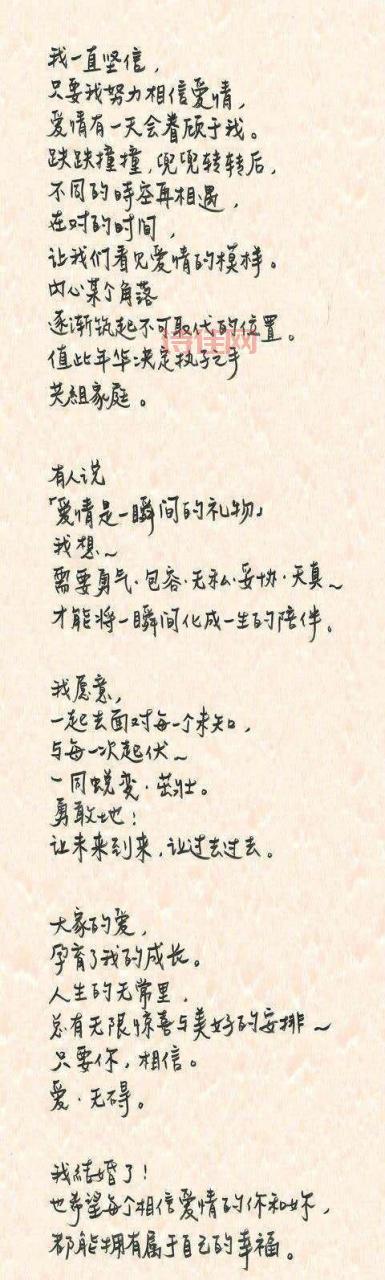 我一直坚信，
只要我努力相信爱情，
爱情有一天会眷顾于我。
跌跌撞撞，兜兜转转后，
不同的時空再相遇，
在对的时间，
让我们看见爱情的模样。
内心某个角落
逐渐筑起不可取代的位置。
值此年华决定执子之手
共組家庭。
有人说
「爱情是一瞬间的礼物」
我想~
需要勇气·包容·无私·妥协·天真~
才能将一瞬间化成一生的陪伴。
我愿意，
一起去面对每一个未知，
与每一次起伏~
一同蜕变·茁壮。
勇敢地！
让未来到来，让过去过去。
大家的爱，
孕育了我的成长。
人生的无常里，
总有无限惊喜与美好的安排~
只要你，相信。
爱·无碍。
我結婚了！
也希望每个相信爱情的你和妳，
都能拥有属于自己的幸福。